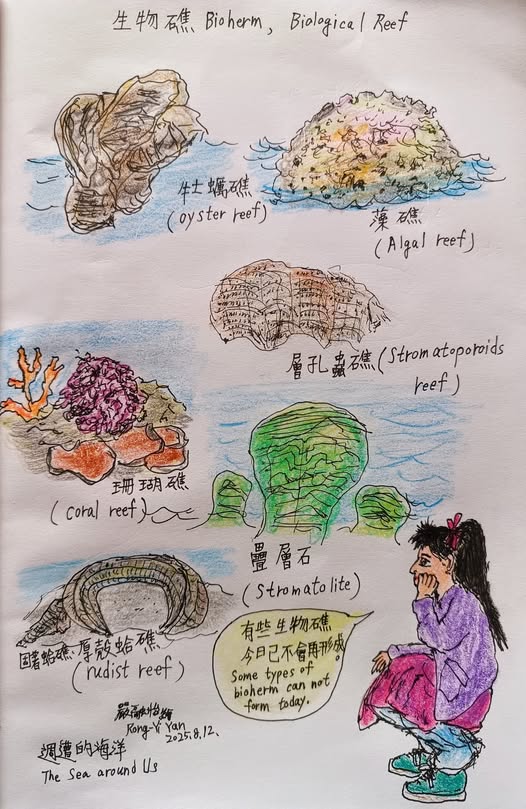 生物礁 Bioherm, Biological Reef
牡蠣礁
(oyster reef)
藻礁
(Algal reef)
層孔蟲礁 (Stromatoporoids
reef)
珊瑚礁
(coral reef)
疊層石
(Stromatolite)
固著蛤礁, 厚殼蛤礁
(rudist reef)
有些生物礁
今日已不會再形成。
Some types of
bioherm can not
form today.
Rong-Yi Yan
2025.8.12.
週遭的海洋
The Sea around Us